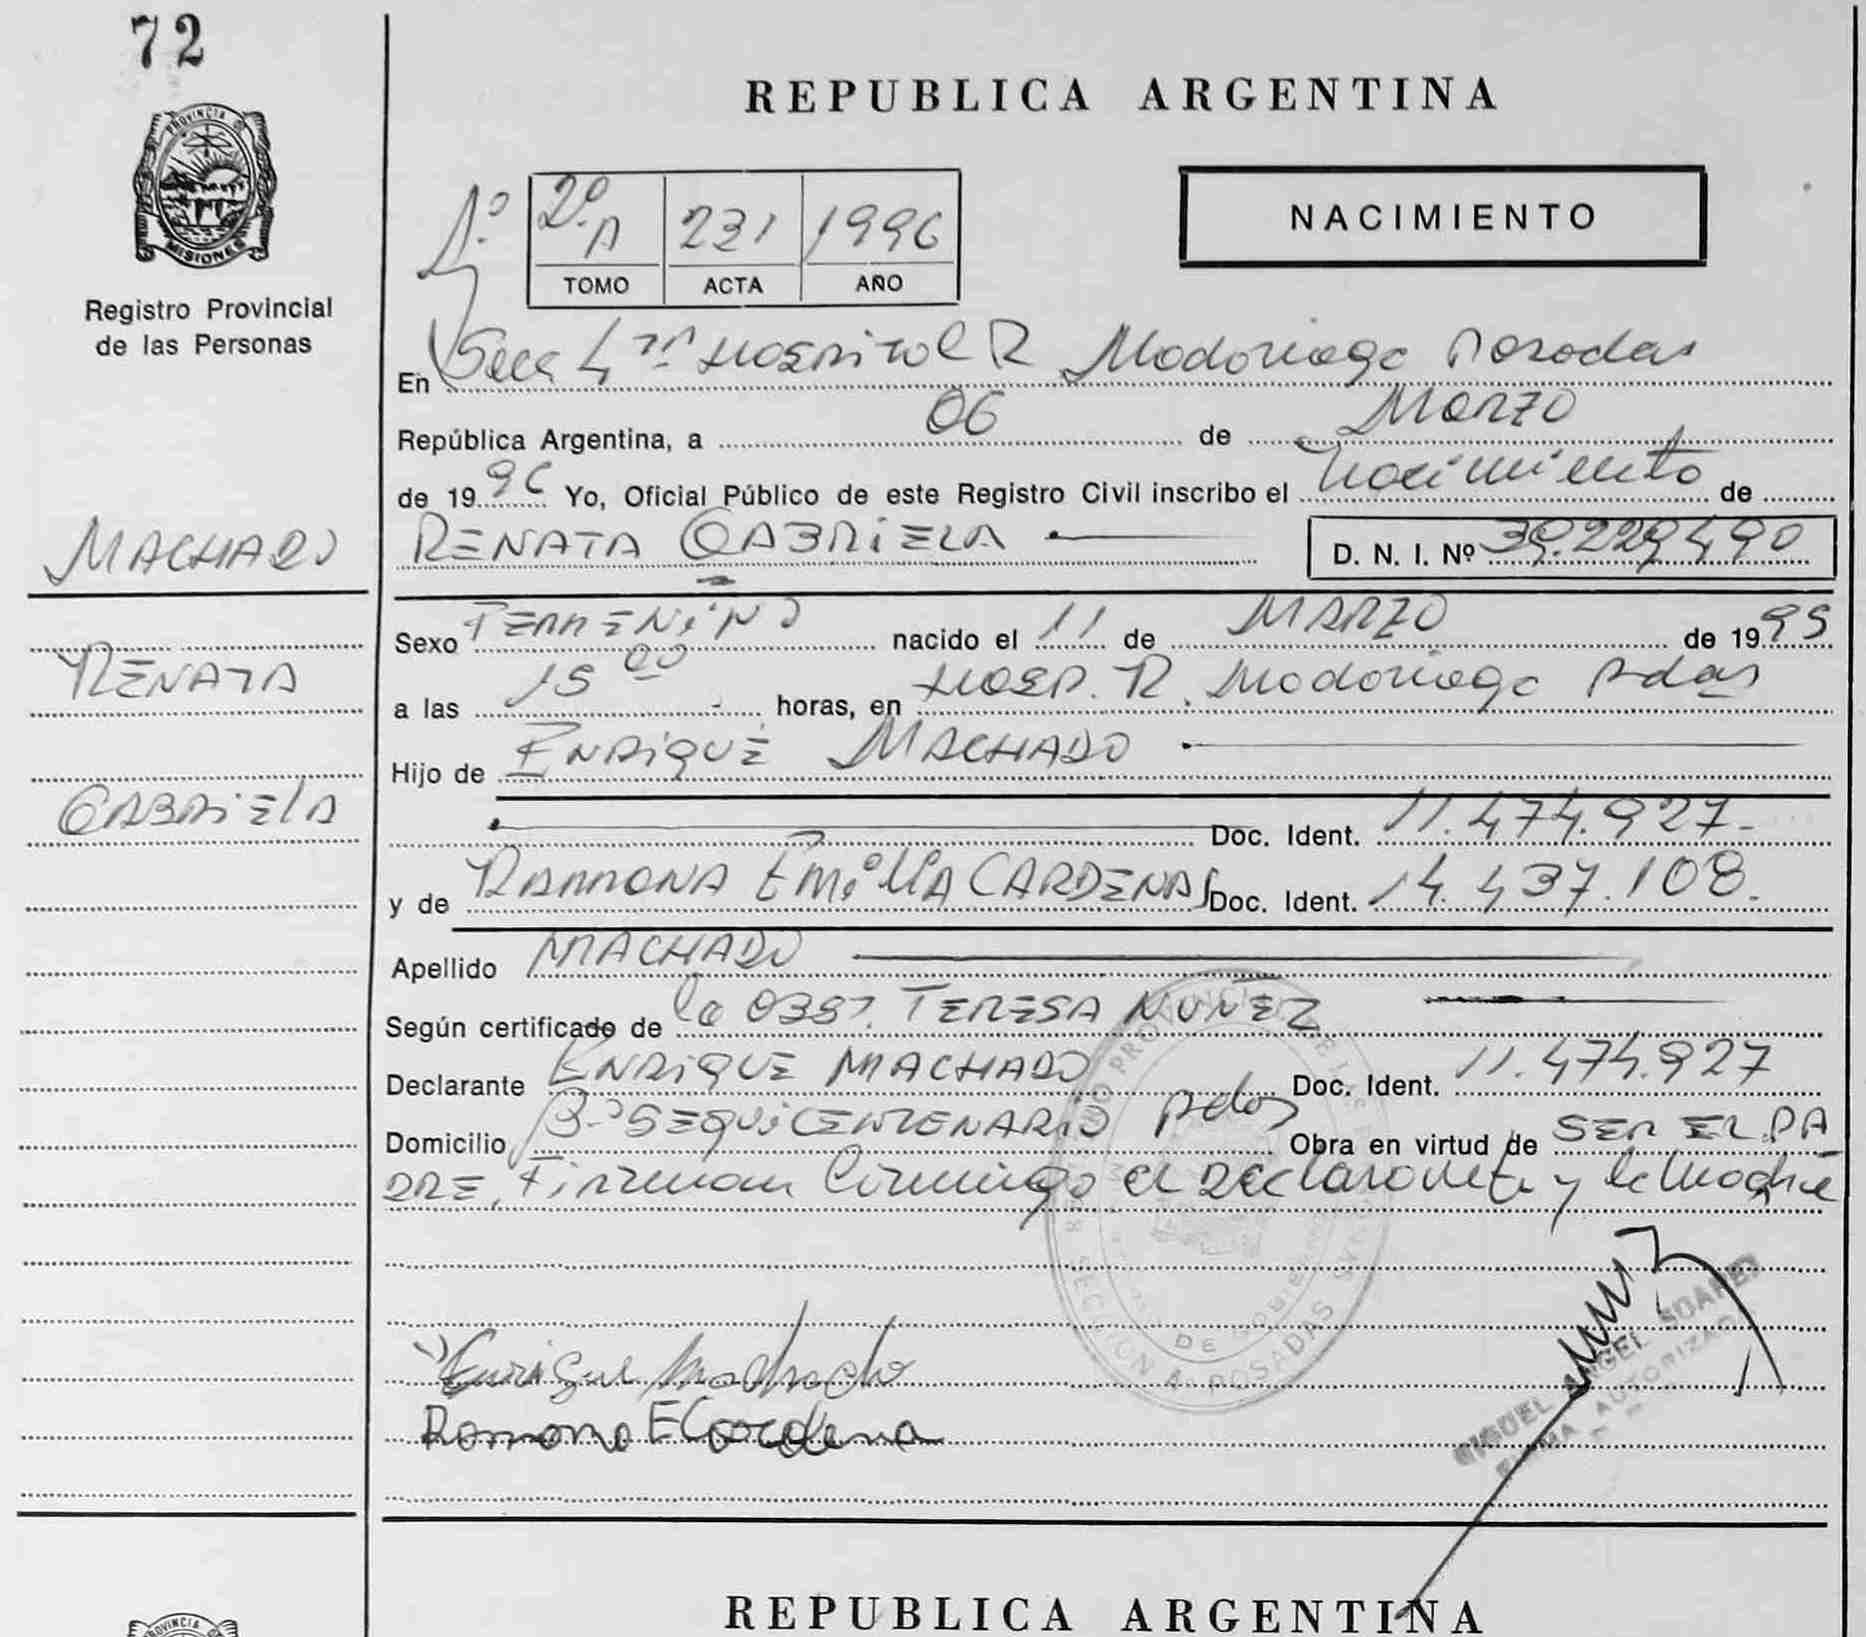 72
REPUBLICA ARGENTINA
PROVINCIA DE MISIONES
Registro Provincial
de las Personas
1º 2º A 231 1996
TOMO ACTA AÑO
NACIMIENTO
En Secc 4ta Hospitol R Madariaga Posadas
República Argentina, a 06 de Marzo
de 1996 Yo, Oficial Público de este Registro Civil inscribo el Nacimiento de
MACHADO
RENATA GABRIELA D. N. I. Nº 39.229.490
Sexo FEMENINO nacido el 11 de MARZO de 1995
RENATA
a las 15 00 horas, en HOSP. R. Madariaga Pdas
Hijo de ENRIQUE MACHADO
GABRIELA
Doc. Ident. 11.474.927.-
y de RAMONA EMILIA CARDENAS Doc. Ident. 14.437.108.
Apellido MACHADO
Según certificado de la OBST. TERESA NUÑEZ
Declarante ENRIQUE MACHADO Doc. Ident. 11.474.927
Domicilio Bº SEQUICENTENARIO Pdas Obra en virtud de SER EL PA
DRE, Firman Conmigo el Declarante y la Madre
SECCION 4a POSADAS
DE GOBIERNO
Enrique Machado
Ramona E Cardena
MIGUEL ANGEL SOAREZ
FIRMA AUTORIZADA
REPUBLICA ARGENTINA
PROVINCIA DE